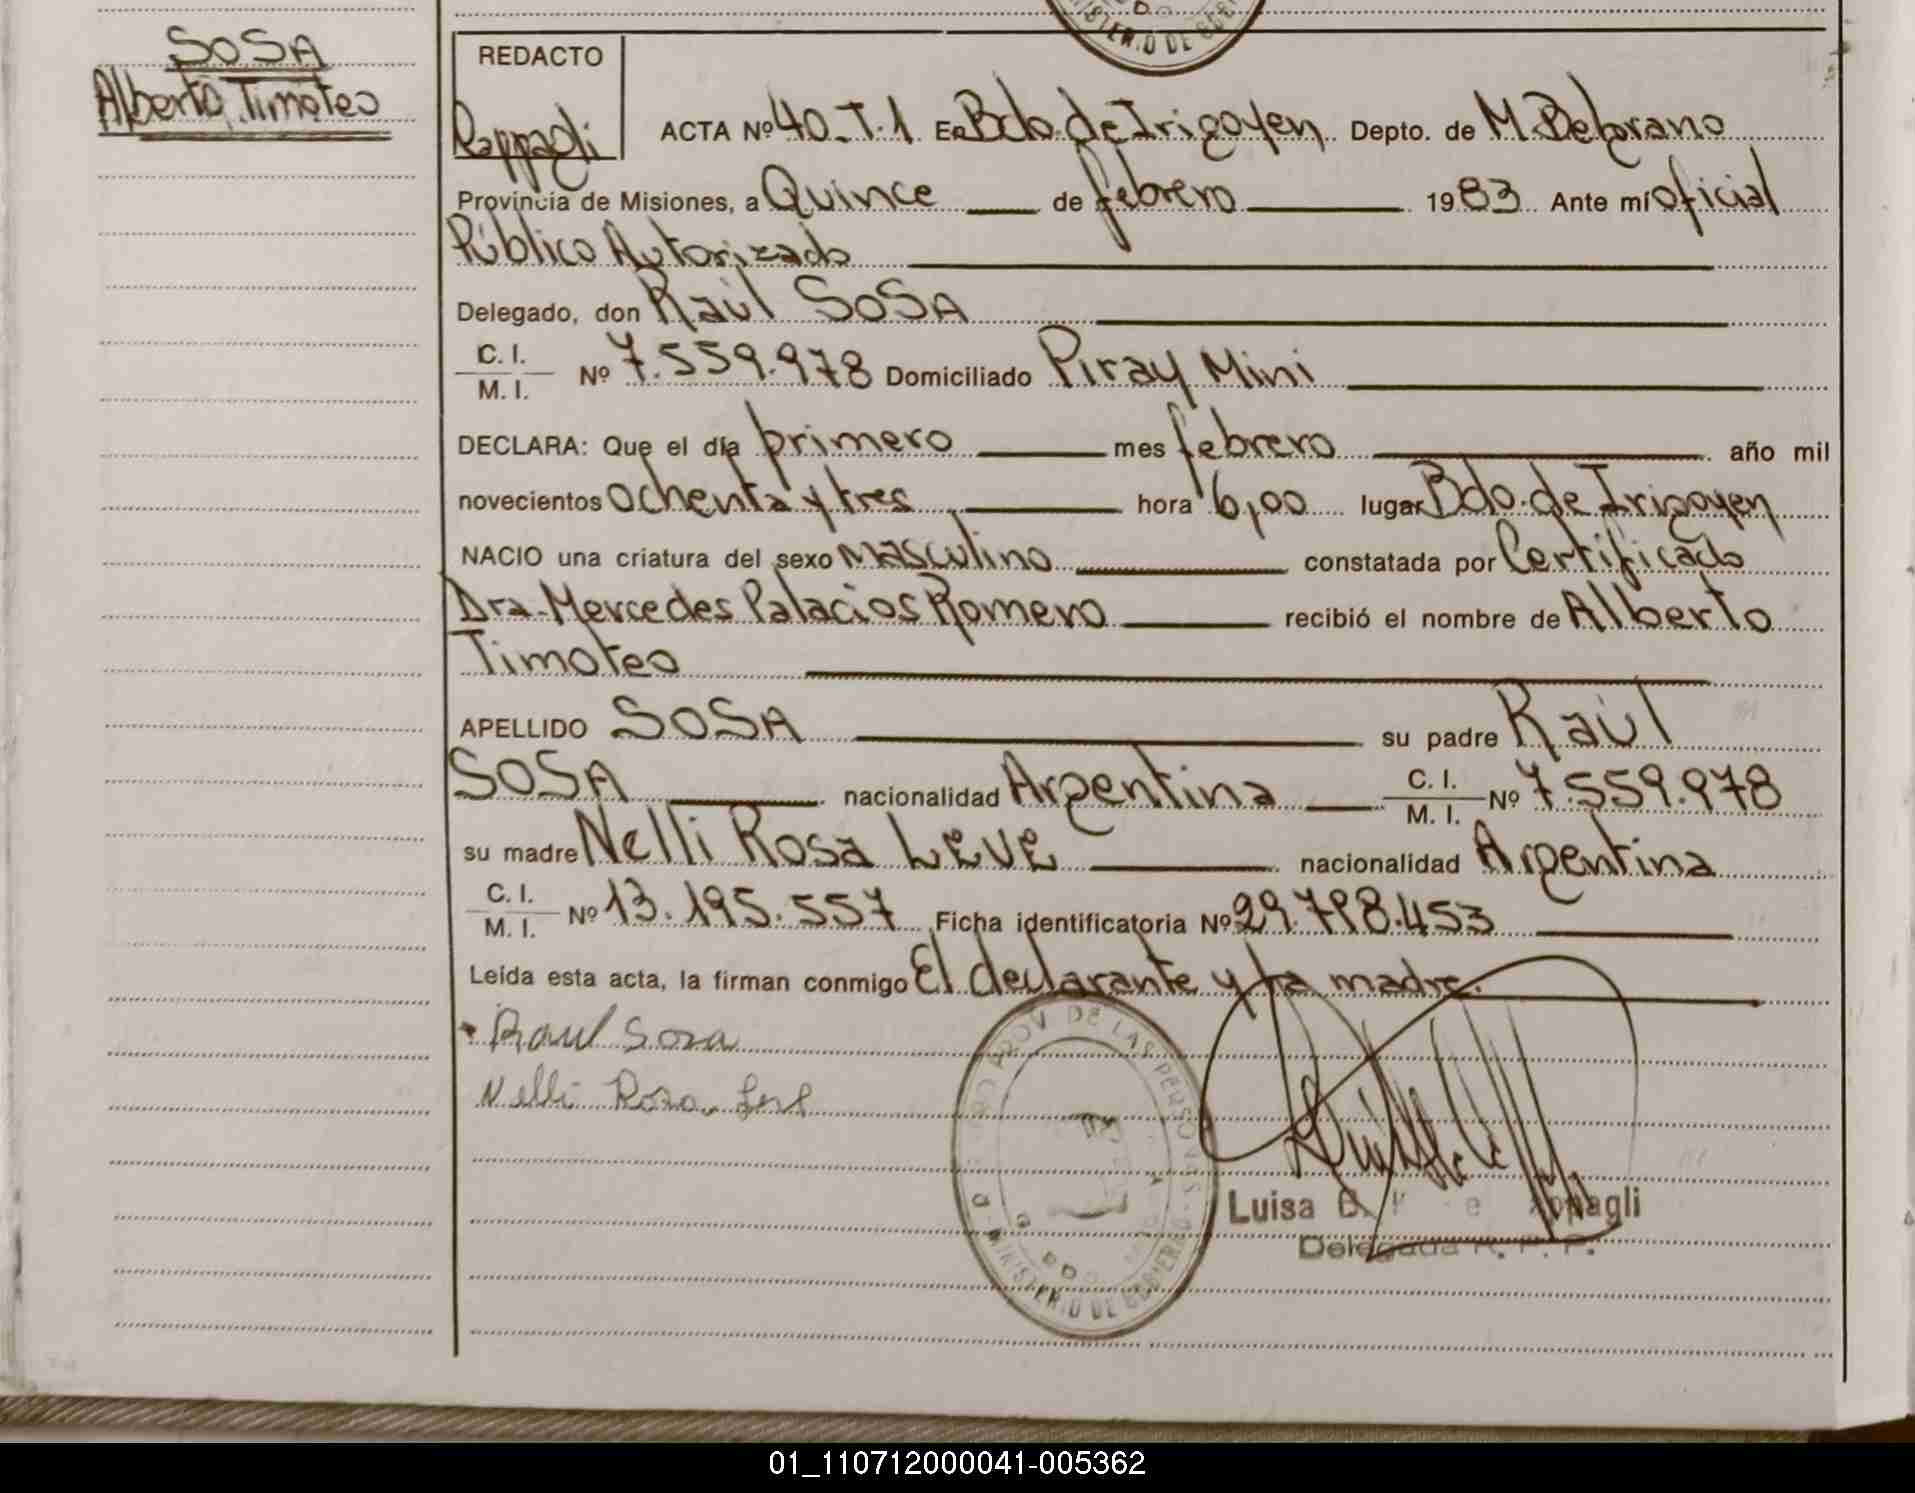 SOSA
Alberto Timoteo
REDACTO
Pappagli
ACTA Nº 40-T.1 En Bdo. de Irigoyen Depto. de M. Belgrano
Provincia de Misiones, a Quince de febrero 1983 Ante mí oficial
Público Autorizado
Delegado, don Raúl SOSA
C. I.
M. I. Nº 7.559.978 Domiciliado Piray Mini
DECLARA: Que el día primero mes febrero año mil
novecientos ochenta y tres hora 6,00 lugar Bdo. de Irigoyen
NACIO una criatura del sexo masculino constatada por Certificado
Dra. Mercedes Palacios Romero recibió el nombre de Alberto
Timoteo
APELLIDO SOSA su padre Raúl
SOSA nacionalidad Argentina C. I.
M. I. Nº 7.559.978
su madre Nelli Rosa LEVE nacionalidad Argentina
C. I.
M. I. Nº 13.195.557 Ficha identificatoria Nº 29.798.453
Leída esta acta, la firman conmigo El declarante y la madre.
Raul Sosa
Nelli Rosa
DE LAS PERSONAS
MINISTERIO DE GOBIERNO
Luisa
Delegada R. P. P.
01_110712000041-005362